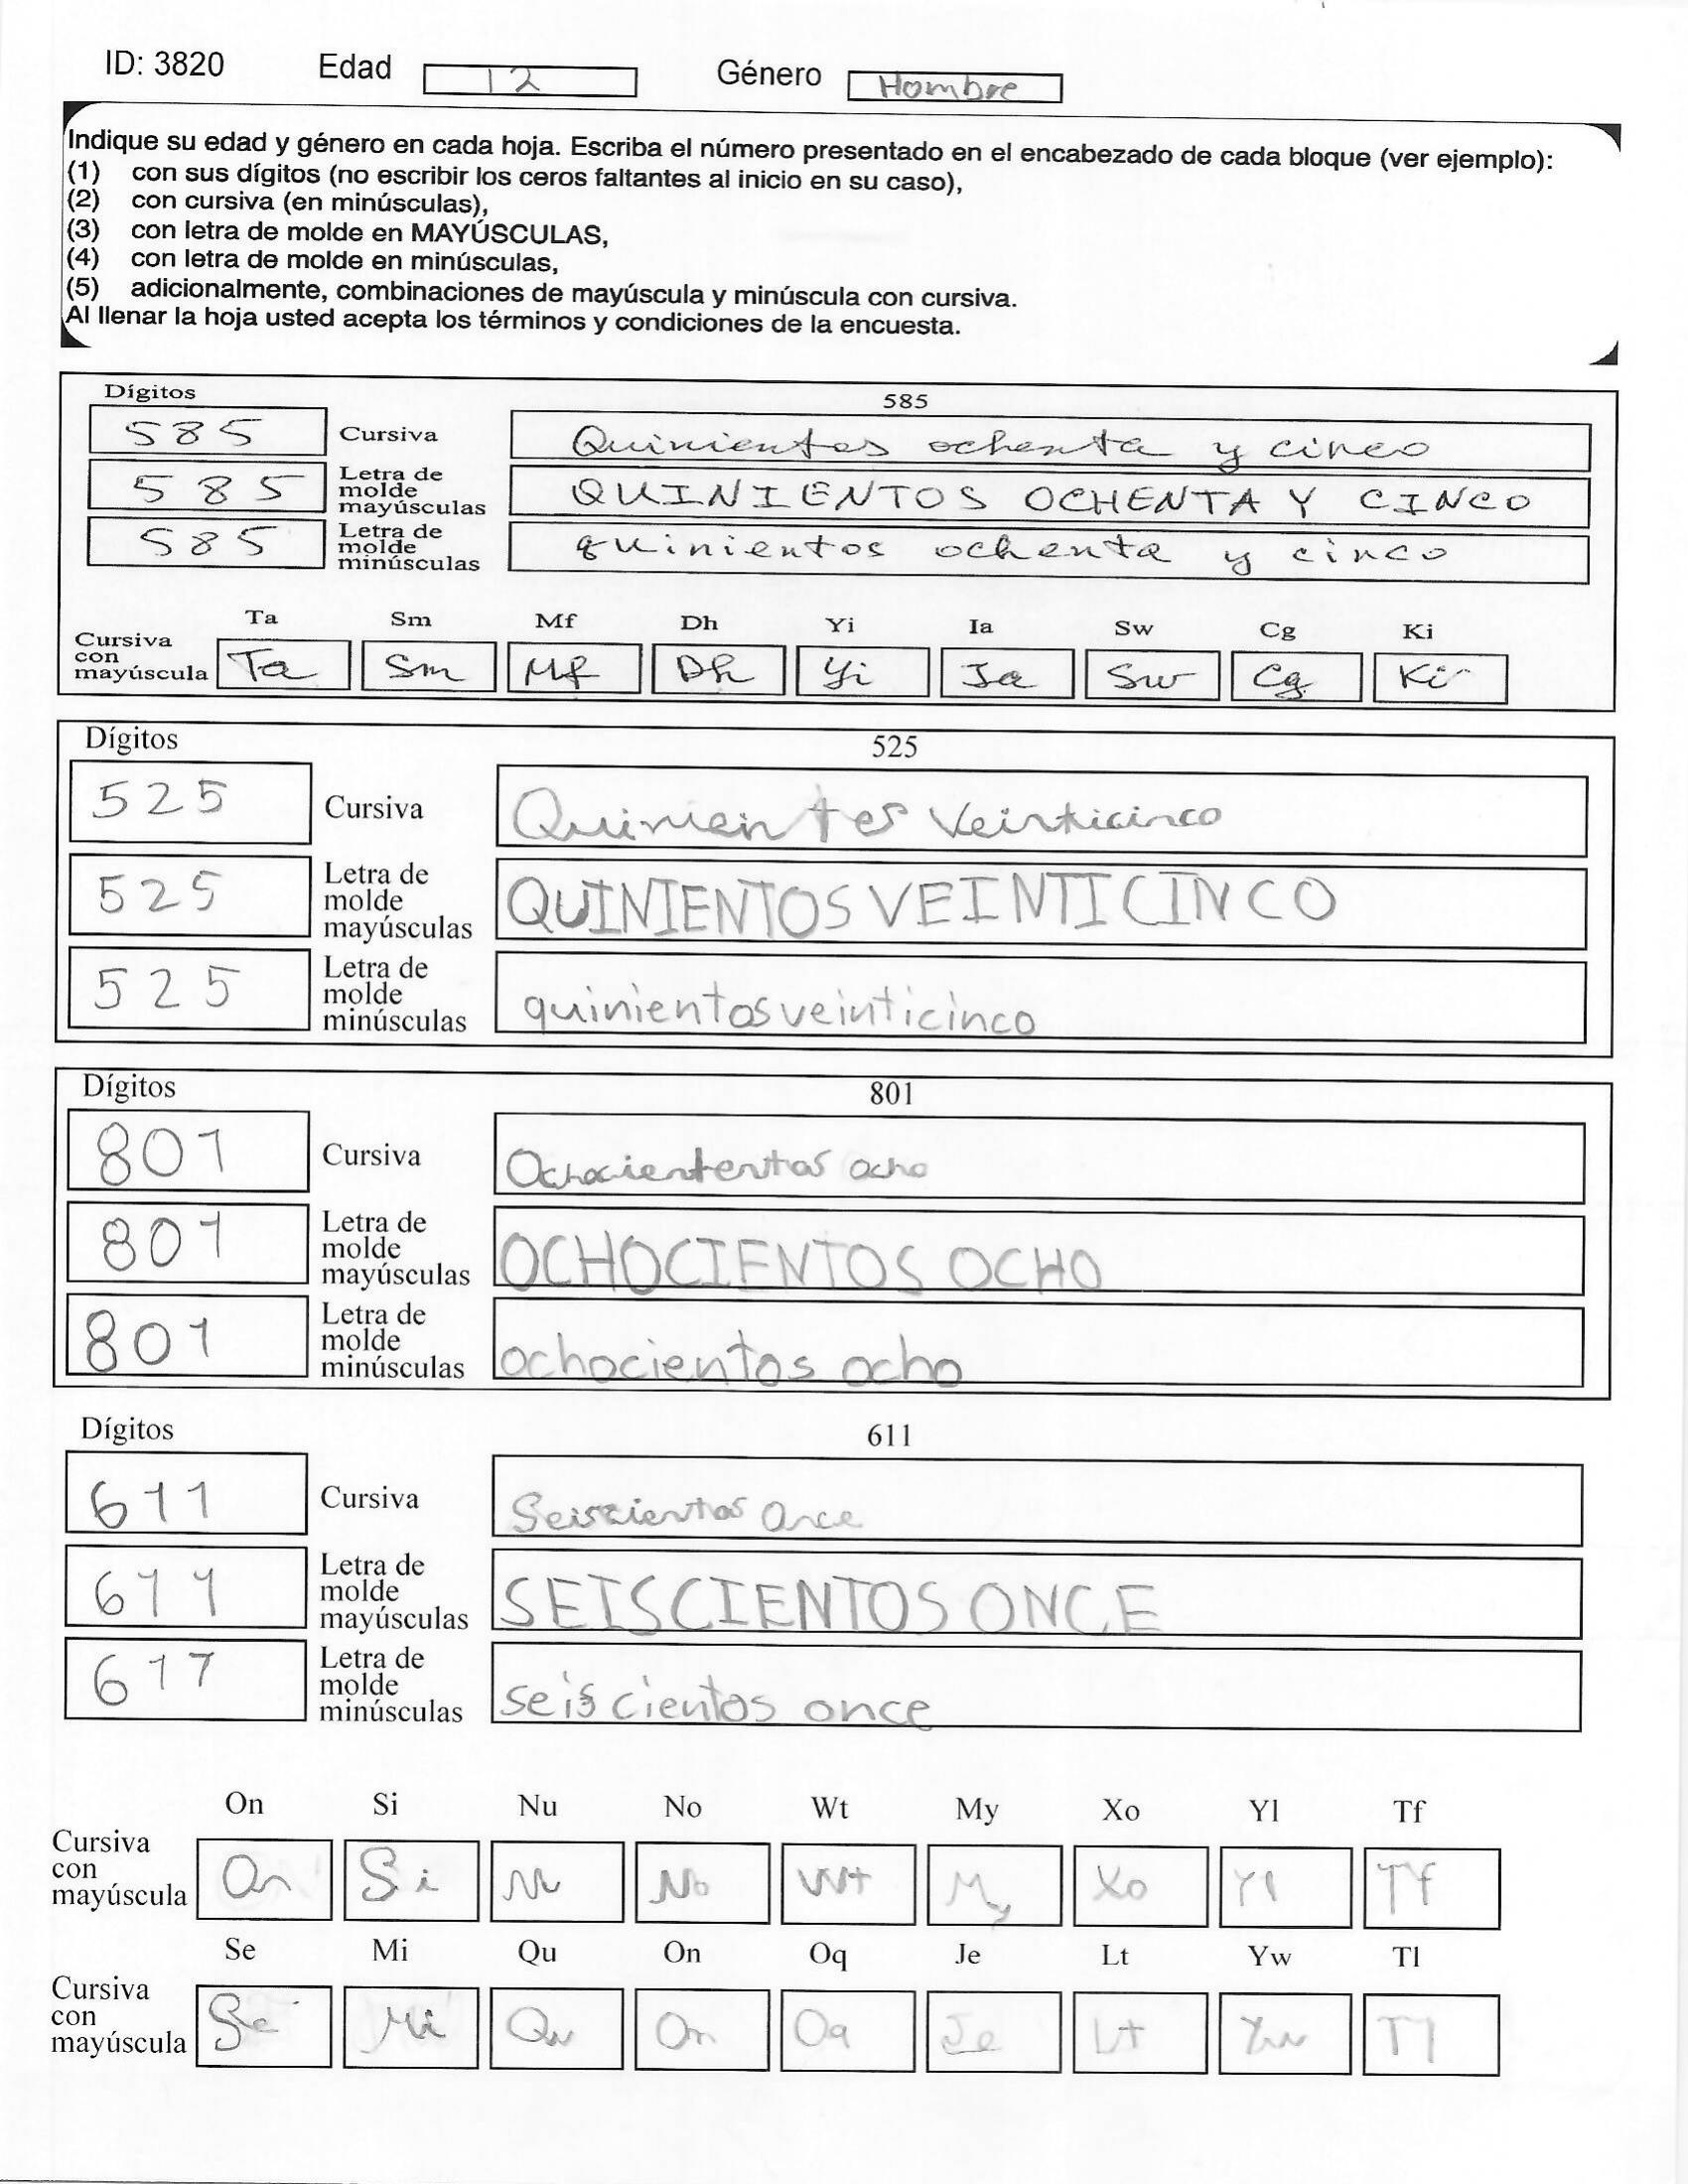 ID: 3820 Edad 12 Género Hombre
Indique su edad y género en cada hoja. Escriba el número presentado en el encabezado de cada bloque (ver ejemplo):
(1) con sus dígitos (no escribir los ceros faltantes al inicio en su caso),
(2) con cursiva (en minúsculas),
(3) con letra de molde en MAYÚSCULAS,
(4) con letra de molde en minúsculas,
(5) adicionalmente, combinaciones de mayúscula y minúscula con cursiva.
Al llenar la hoja usted acepta los términos y condiciones de la encuesta.
Dígitos 585
585 Cursiva Quinientos ochenta y cinco
585 Letra de molde mayúsculas QUINIENTOS OCHENTA Y CINCO
585 Letra de molde minúsculas quinientos ochenta y cinco
Ta Sm Mf Dh Yi Ia Sw Cg Ki
Cursiva con mayúscula Ta Sm Mf Dh Yi Ia Sw Cg Ki
Dígitos 525
525 Cursiva Quinientos veinticinco
525 Letra de molde mayúsculas QUINIENTOS VEINTICINCO
525 Letra de molde minúsculas quinientos veinticinco
Dígitos 801
801 Cursiva Ochociententos ocho
801 Letra de molde mayúsculas OCHOCIENTOS OCHO
801 Letra de molde minúsculas ochocientos ocho
Dígitos 611
611 Cursiva Seiscientos Once
611 Letra de molde mayúsculas SEISCIENTOS ONCE
611 Letra de molde minúsculas seiscientos once
On Si Nu No Wt My Xo Yl Tf
Cursiva con mayúscula On Si Nu No Wt My Xo Yl Tf
Se Mi Qu On Oq Je Lt Yw Tl
Cursiva con mayúscula Se Mi Qu On Oq Je Lt Yw Tl